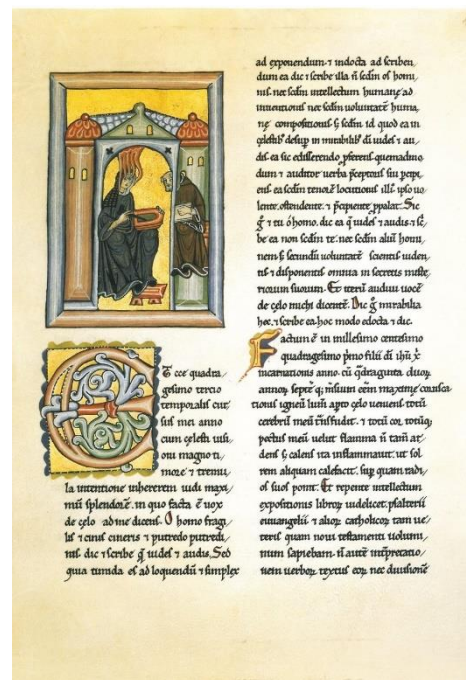 Et ecce quadra/
gesimo tercio
temporalis cur/
sus mei anno
cum celesti uisi/
oni magno ti/
more ⁊ tremu/
la intentione inhererem uidi maxi/
mū splendorē. in quo facta ē uox
de celo ad me dicens. O homo fragi/
lis ⁊ cinis cineris ⁊ putredo putredi/
nis dic ⁊ scribe q̄ uides ⁊ audis. Sed
quia timida es ad loquendū ⁊ simplex
ad exponendum ⁊ indocta ad scriben/
dum ea dic ⁊ scribe illa n̄ scdm os homi/
nis. nec scdm intellectum humanę ad
inuentionis nec scdm uoluntatē huma/
nę compositionis s; scdm id quod ea in
celestib; desup in mirabilib; di uides ⁊ au/
dis ea sic edisserendo pferens quemadmo
dum ⁊ auditor uerba pceptoris sui pcipi/
ens ea scdm tenorē locutionis illi ipso uo
lente. ostendente ⁊ pcipiente ppalat. Sic
g̊ ⁊ tu ó homo. dic ea q̄ uides ⁊ audis ⁊ sc̄/
be ea non scdm te. nec scdm aliū homi/
nem s; secundū uoluntatē scientis uiden/
tis ⁊ disponentis omnia in secretis miste/
riorum suorum. Et iterū audiui uocē
de celo michi dicentē. Dic g̊ mirabilia
hec. ⁊ scribe ea hoc modo edocta ⁊ dic.
Factum ē in millesimo centesimo
quadragesimo pmo filii di ihu x̄
incarnationis anno. cū q̄draginta duoꝝ
annoꝝ septē q; msium eēm maxime corusca
tionis igneū lum apto celo ueniens totū
cerebrū meū tnsfudit. ⁊ totū cor totūq;
pectus meū uelut flamma n̄ tam̄ ar/
dens s; calens ita inflammauit. ut sol
rem aliquam calefacit. sup quam radi/
os suos ponit. Et repente intellectum
expositionis libroꝝ uidelicet psalterii
euuangelii ⁊ alioꝝ catholicoꝝ tam ue/
teris quam noui testamenti uolumi/
num sapiebam. n̄ autē intp̄retatio/
nem uerboꝝ textus eoꝝ nec diuisionē